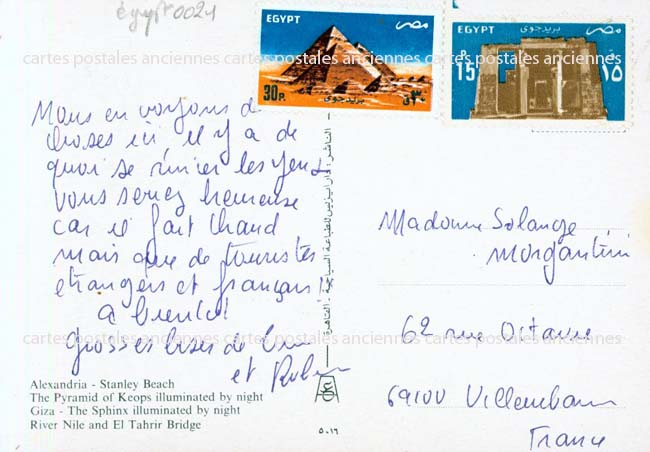 égypt0021
EGYPT مصر
بريد جوى
30P. ٣٠م
EGYPT مصر
بريد جوى
P. 15 ١٥
cartes postales anciennes cartes postales anciennes cartes postales anciennes
Nous en voyons de
choses ici, il y a de
quoi se rincer les yeux
vous seriez heureuse
car il fait chaud
mais que de touristes
etrangers et français!!
A bientot
grosses bises de
et
Madame Solange
Morgantini
62 rue Octavie
69100 Villeurbanne
France
cartes postales anciennes cartes postales anciennes cartes postales anciennes
Alexandria - Stanley Beach
The Pyramid of Keops illuminated by night
Giza - The Sphinx illuminated by night
River Nile and El Tahrir Bridge
٥٠١٦